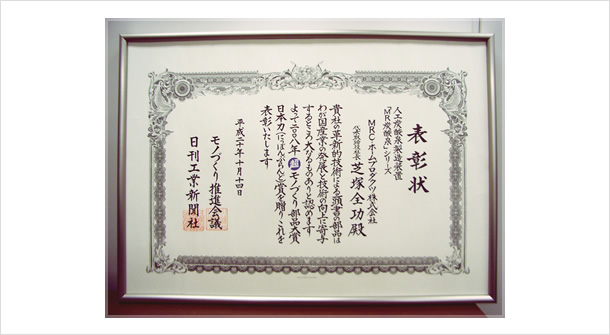 表彰状
人工炭酸泉製造装置
「MR炭酸泉」シリーズ
MRC・ホームプロダクツ株式会社
代表取締役社長 芝塚全功殿
貴社の革新的技術による頭書の部品は
わが国産業の発展と技術の向上に寄与
するところ大なるものありと認めます
よって二〇〇八年超モノづくり部品大賞
日本力(にっぽんぶらんど)賞を贈りこれを
表彰いたします
平成二十年十月十四日
モノづくり推進会議
日刊工業新聞社